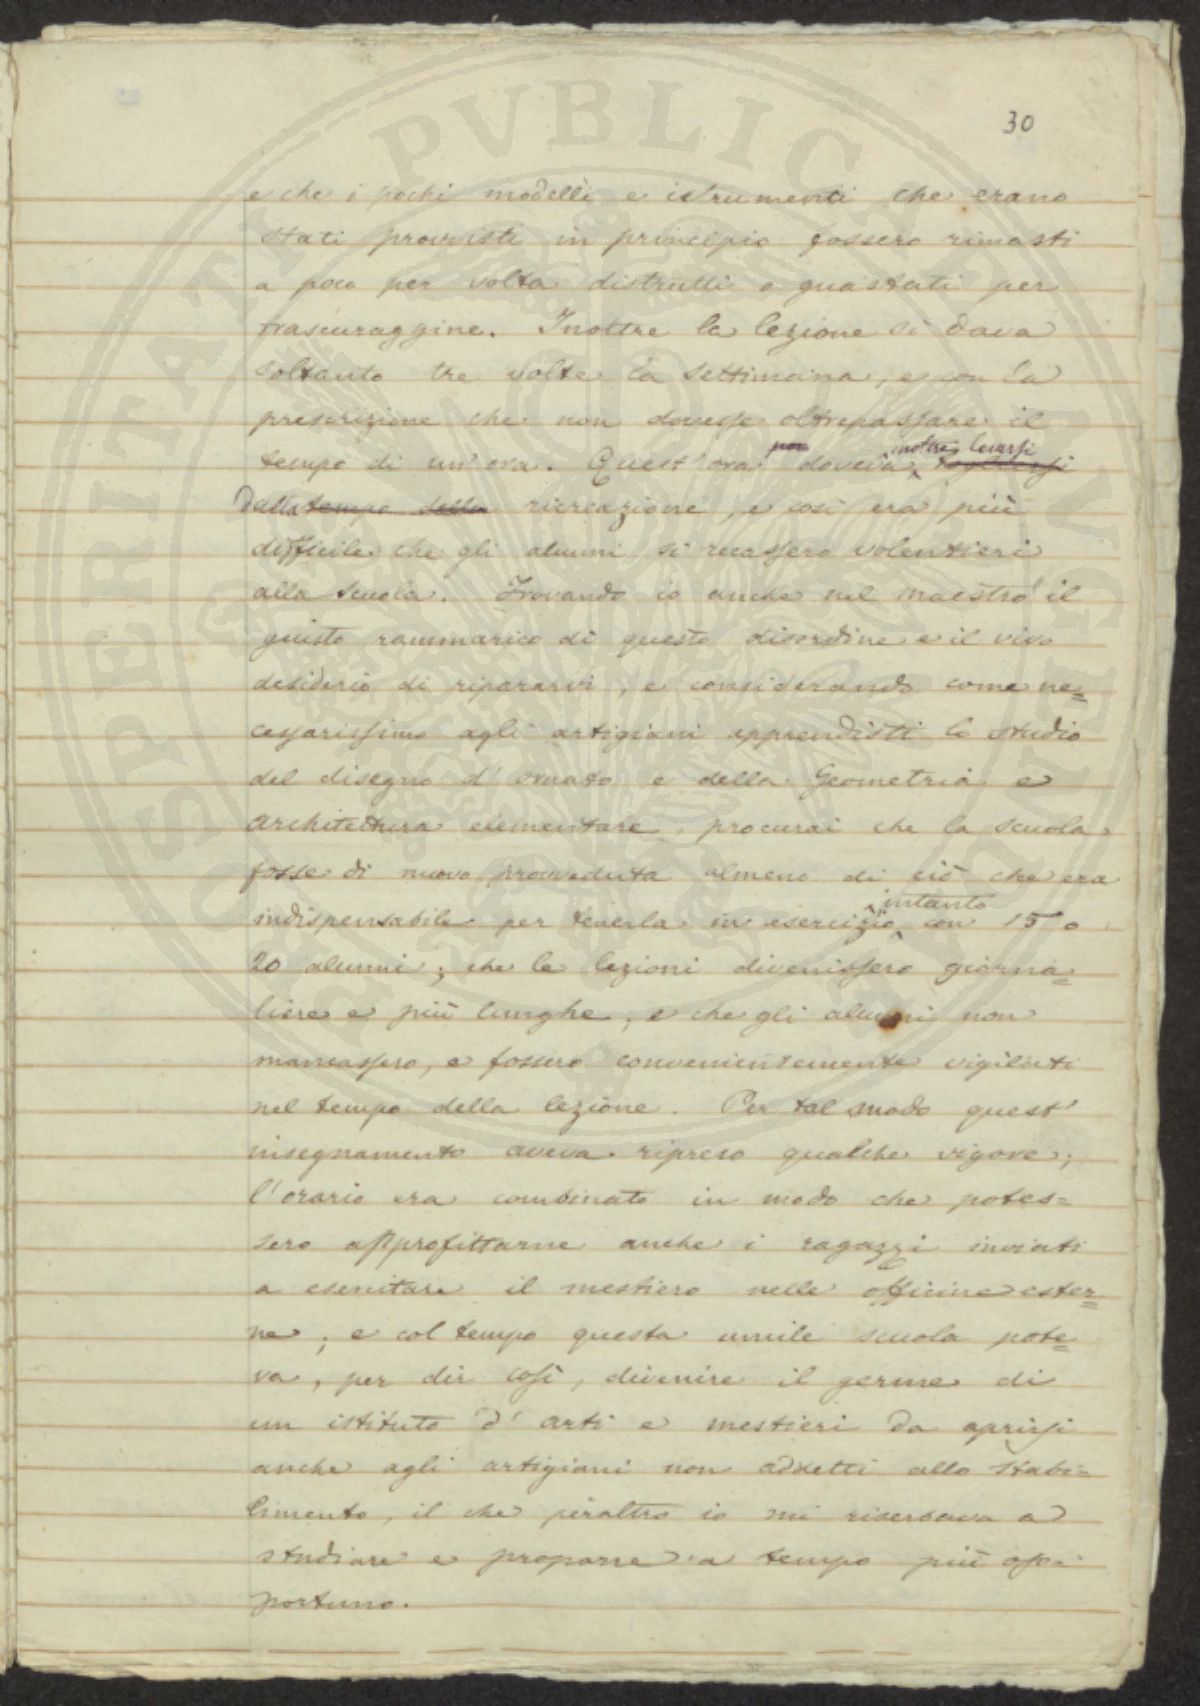 30
e che i pochi modelli e istrumenti che erano
stati provvisti in principio fossero rimasti
a poco per volta distrutti o guastati per
trascuraggine. Inoltre la lezione si dava
soltanto tre volte la settimana, e con la
prescrizione che non dovesse oltrepassare il
tempo di un'ora. Quest'ora poi doveva inoltre levarsi togliersi
dalla tempo della ricreazione, e così era più
difficile che gli alunni si recassero volentieri
alla scuola. Trovando io anche nel maestro il
giusto rammarico di questo disordine e il vivo
desiderio di ripararvi, e considerando come ne=
cessarissimo agli artigiani apprendisti lo studio
del disegno d'ornato e della Geometria e
architettura elementare, procurai che la scuola
fosse di nuovo provveduta almeno di ciò che era
indispensabile per tenerla in esercizio intanto con 15 o
20 alunni; che le lezioni divenissero giorna=
liere e più lunghe, e che gli alunni non
mancassero, e fossero convenientemente vigilati
nel tempo della lezione. Per tal modo quest'
insegnamento aveva ripreso qualche vigore;
l'orario era combinato in modo che potes=
sero approfittarne anche i ragazzi inviati
a esercitare il mestiero nelle officine ester=
ne; e col tempo questa umile scuola pote=
va, per dir così, divenire il germe di
un istituto d'arti e mestieri da aprirsi
anche agli artigiani non addetti allo Stabi=
limento, il che peraltro io mi riserbava a
studiare e proporre a tempo più op=
portuno.
PUBLICAE
PROSPERITATI